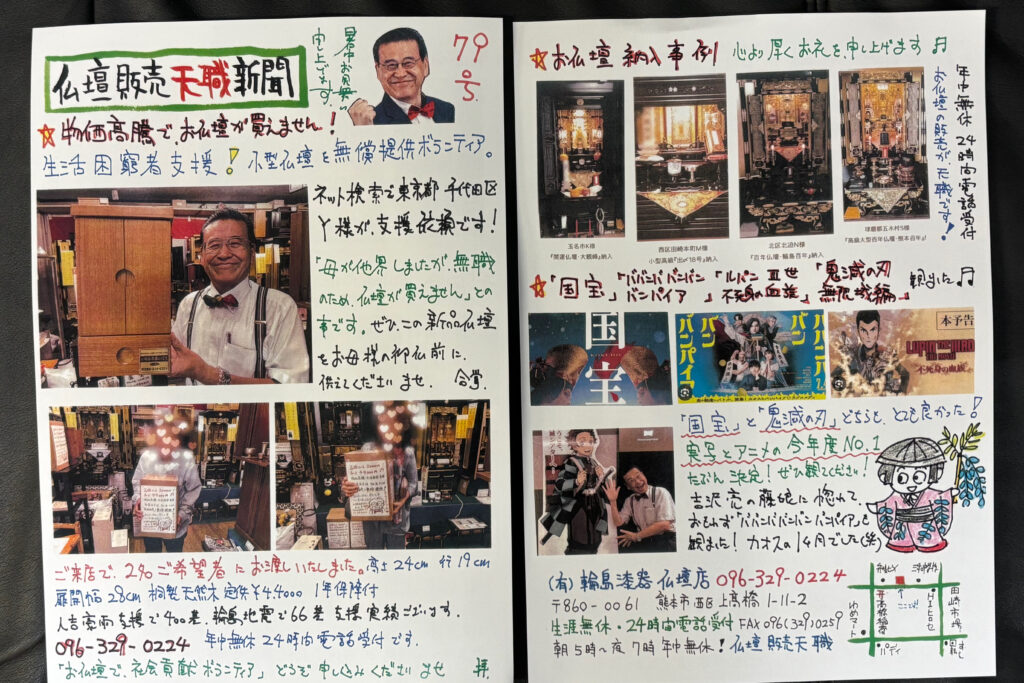 仏壇販売天職新聞
暑中お見舞
申し上げます。
79
☆物価高騰で、お仏壇が買えません!
生活困窮者支援!小型仏壇を無償提供ボランティア。
ネット検索で東京都千代田区
Y様が、支援依頼です!
「母が他界しましたが、無職
のため、仏壇が買えません」との
事です。ぜひ、この新品仏壇
をお母様の御仏前に、
供えてくださいませ。合掌。
ご来店で、2名ご希望者にお渡しいたしました。高さ24cm 行19cm
扉開幅28cm 桐製天然木 定価¥44000 1年保障付
人吉豪雨支援で400基、輪島地震で66基支援実績ございます。
096-329-0224 年中無休24時間電話受付です。
「お仏壇で、社会貢献ボランティア」どうぞ申し込みくださいませ 拝
☆お仏壇納入事例 心より厚くお礼を申し上げます♬
年中無休 24時間電話受付
お仏壇の販売が、天職です!
玉名市K様
『開運仏壇・大観峰』納入
西区田崎本町M様
小型高級『出〆18号』納入
北区北迫N様
『百年仏壇・輪島百年』納入
球磨郡五木村S様
『高級大型百年仏壇・熊本百年』
☆「国宝」「ババンババンバンバンパイア」「ルパン三世 不死身の血族」「鬼滅の刃 無限城編」観ました♬
国宝
ババンババンバンバンパイア
本予告
LUPIN THE IIIRD
不死身の血族
「国宝」と「鬼滅の刃」どちらも、とても良かった!
実写とアニメの今年度No.1
たぶん決定!ぜひ観てください。
吉沢亮の藤娘に惚れて、
おもわず「ババンババンバンバンパイア」も
観ました!カオスの1ヶ月でした(笑)
(有)輪島漆器仏壇店 096-329-0224
〒860-0061 熊本市西区上高橋1-11-2
生涯無休・24時間電話受付 FAX 096(329)0259
朝5時~夜7時 年中無休!仏壇販売天職
ここ!
田崎市場
ゆめマート
高橋稲荷